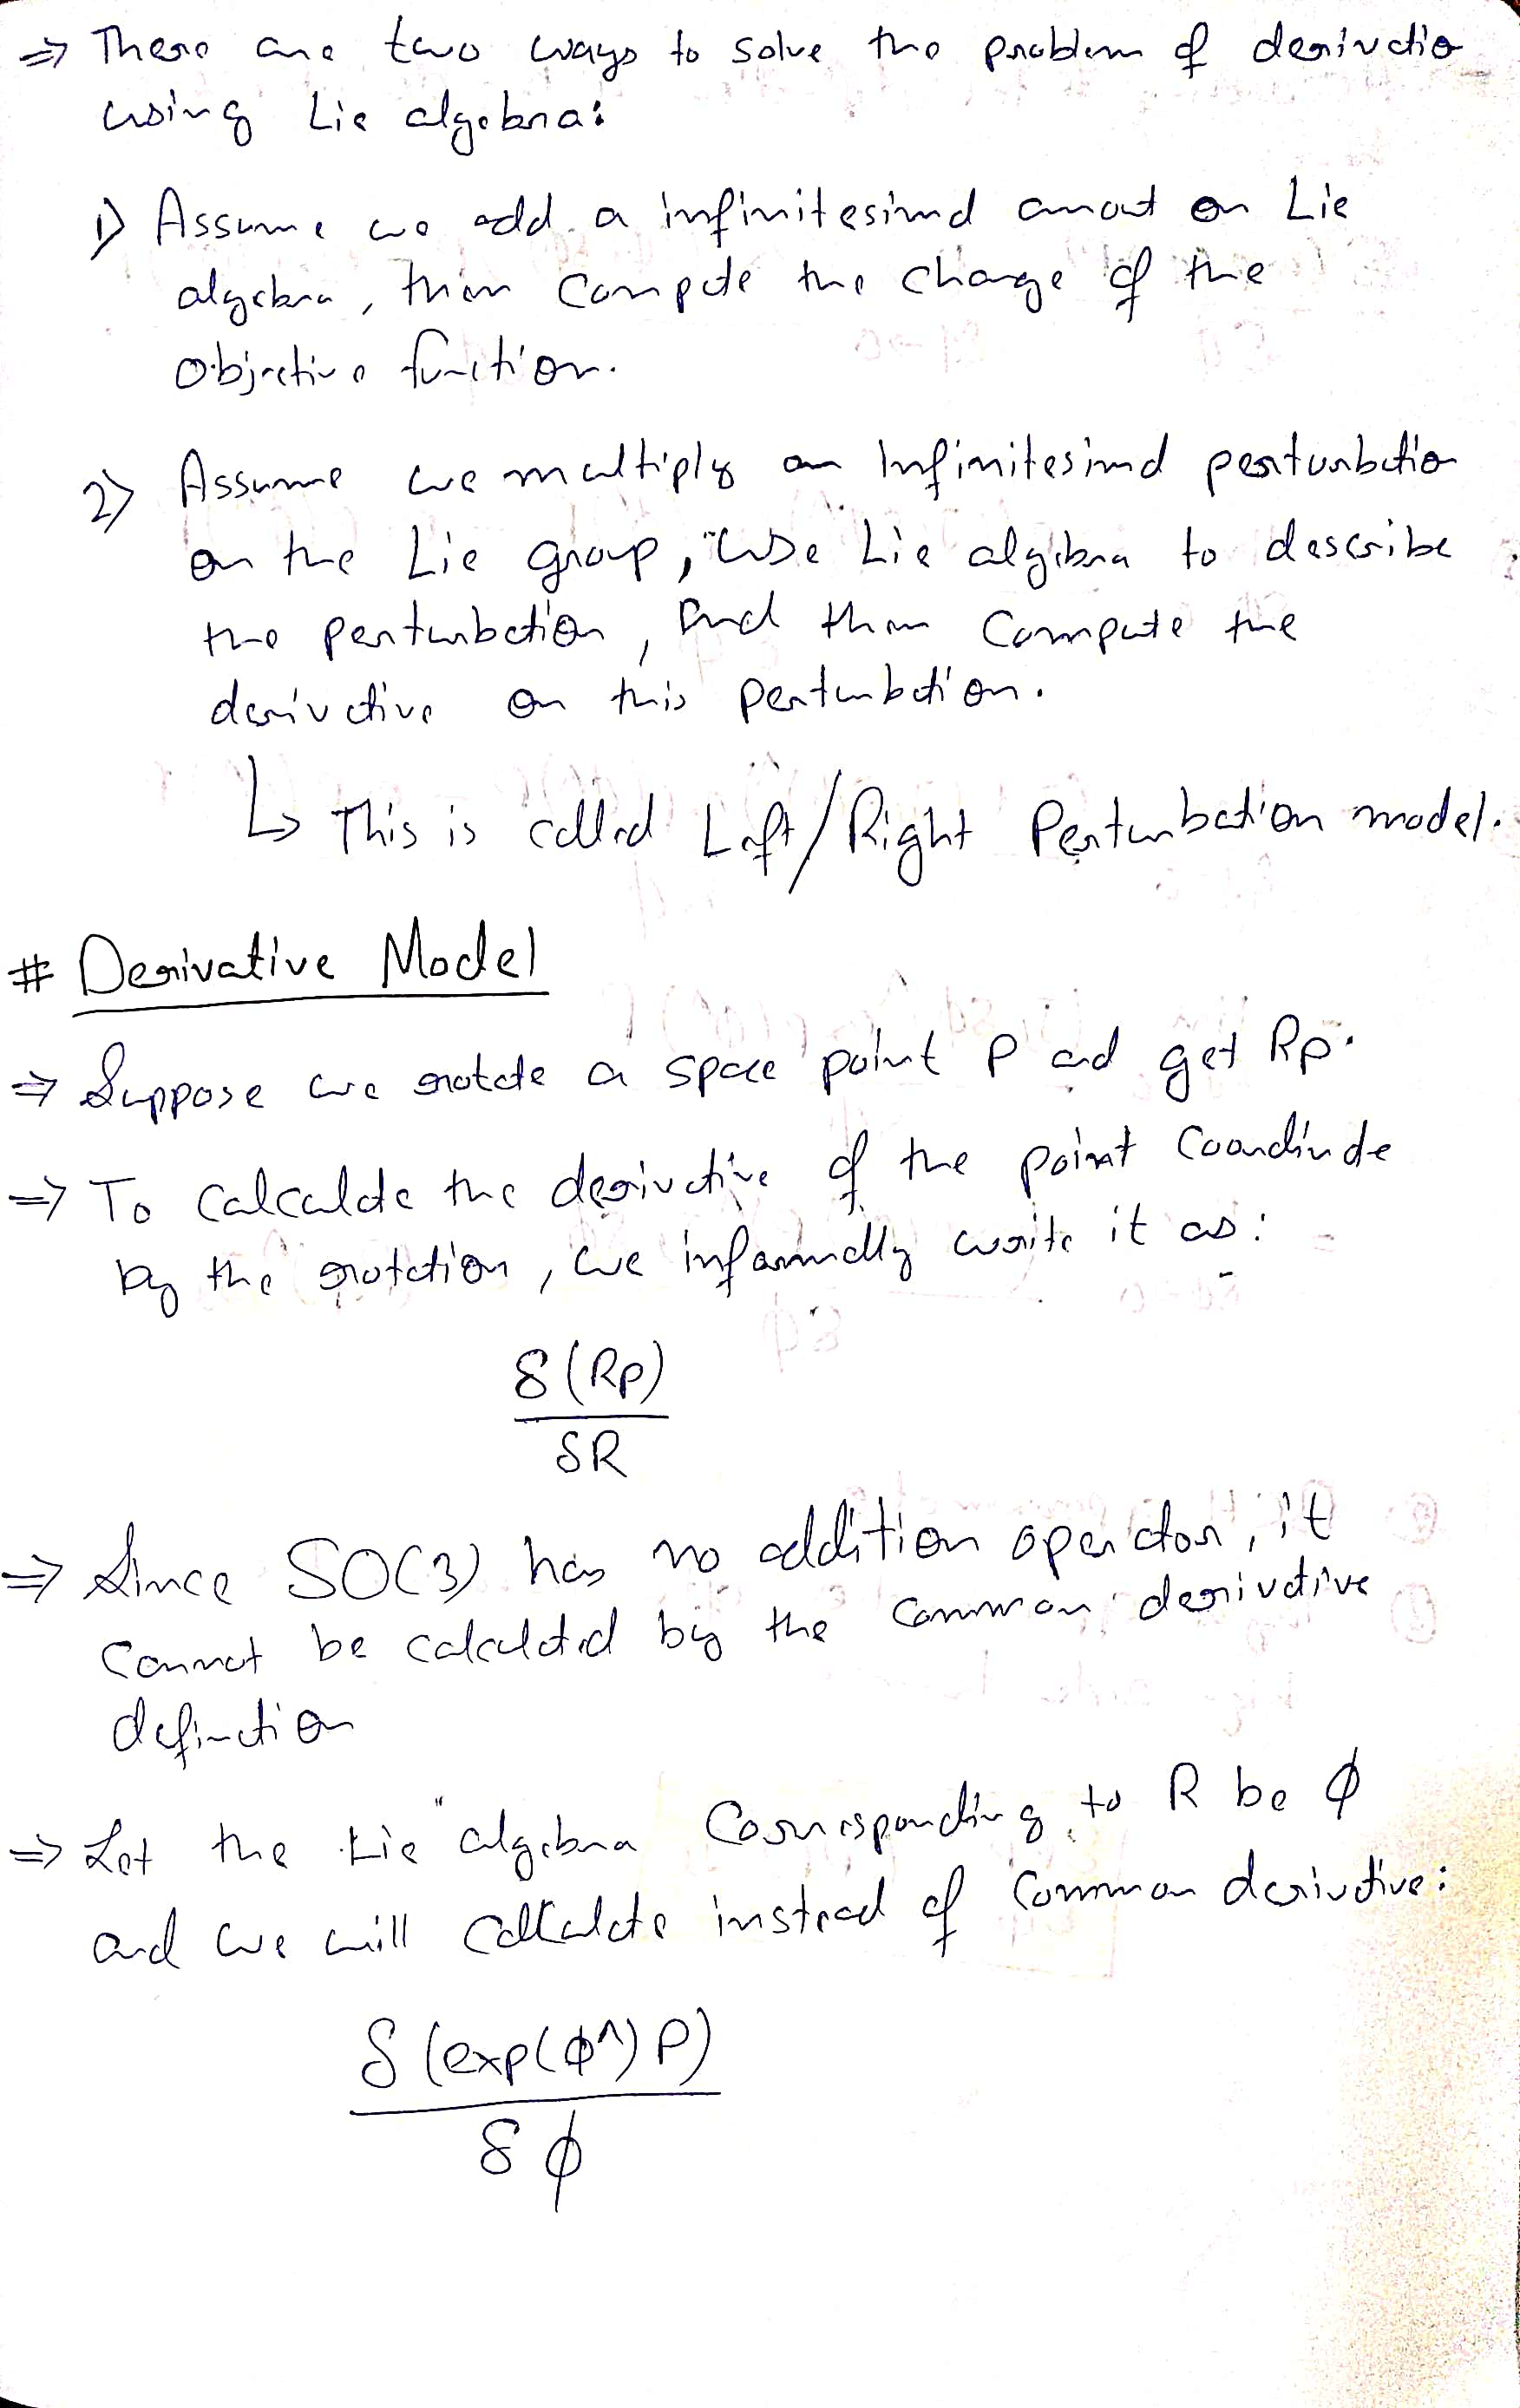 ⇒ There are two ways to solve the problem of derivatio
using Lie algebra:
1) Assume we add a infinitesimal amout on Lie
algebra, then compute the change of the
objective function.
2) Assume we multiply an Infinitesimal perturbatio
on the Lie group, use Lie algebra to describe
the perturbation, and then compute the
derivative on this perturbation.
↳ This is called Left/Right Perturbation model.
# Derivative Model
⇒ Suppose we rotate a space point P and get Rp.
⇒ To calculate the derivative of the point coordinate
by the rotation, we informally write it as:
δ(Rp)
δR
⇒ Since SO(3) has no addition operator, it
cannot be calculated by the common derivative
defination
⇒ Let the Lie algebra corresponding to R be ϕ
and we will calculate instead of common derivative:
δ(exp(ϕ^)P)
δϕ